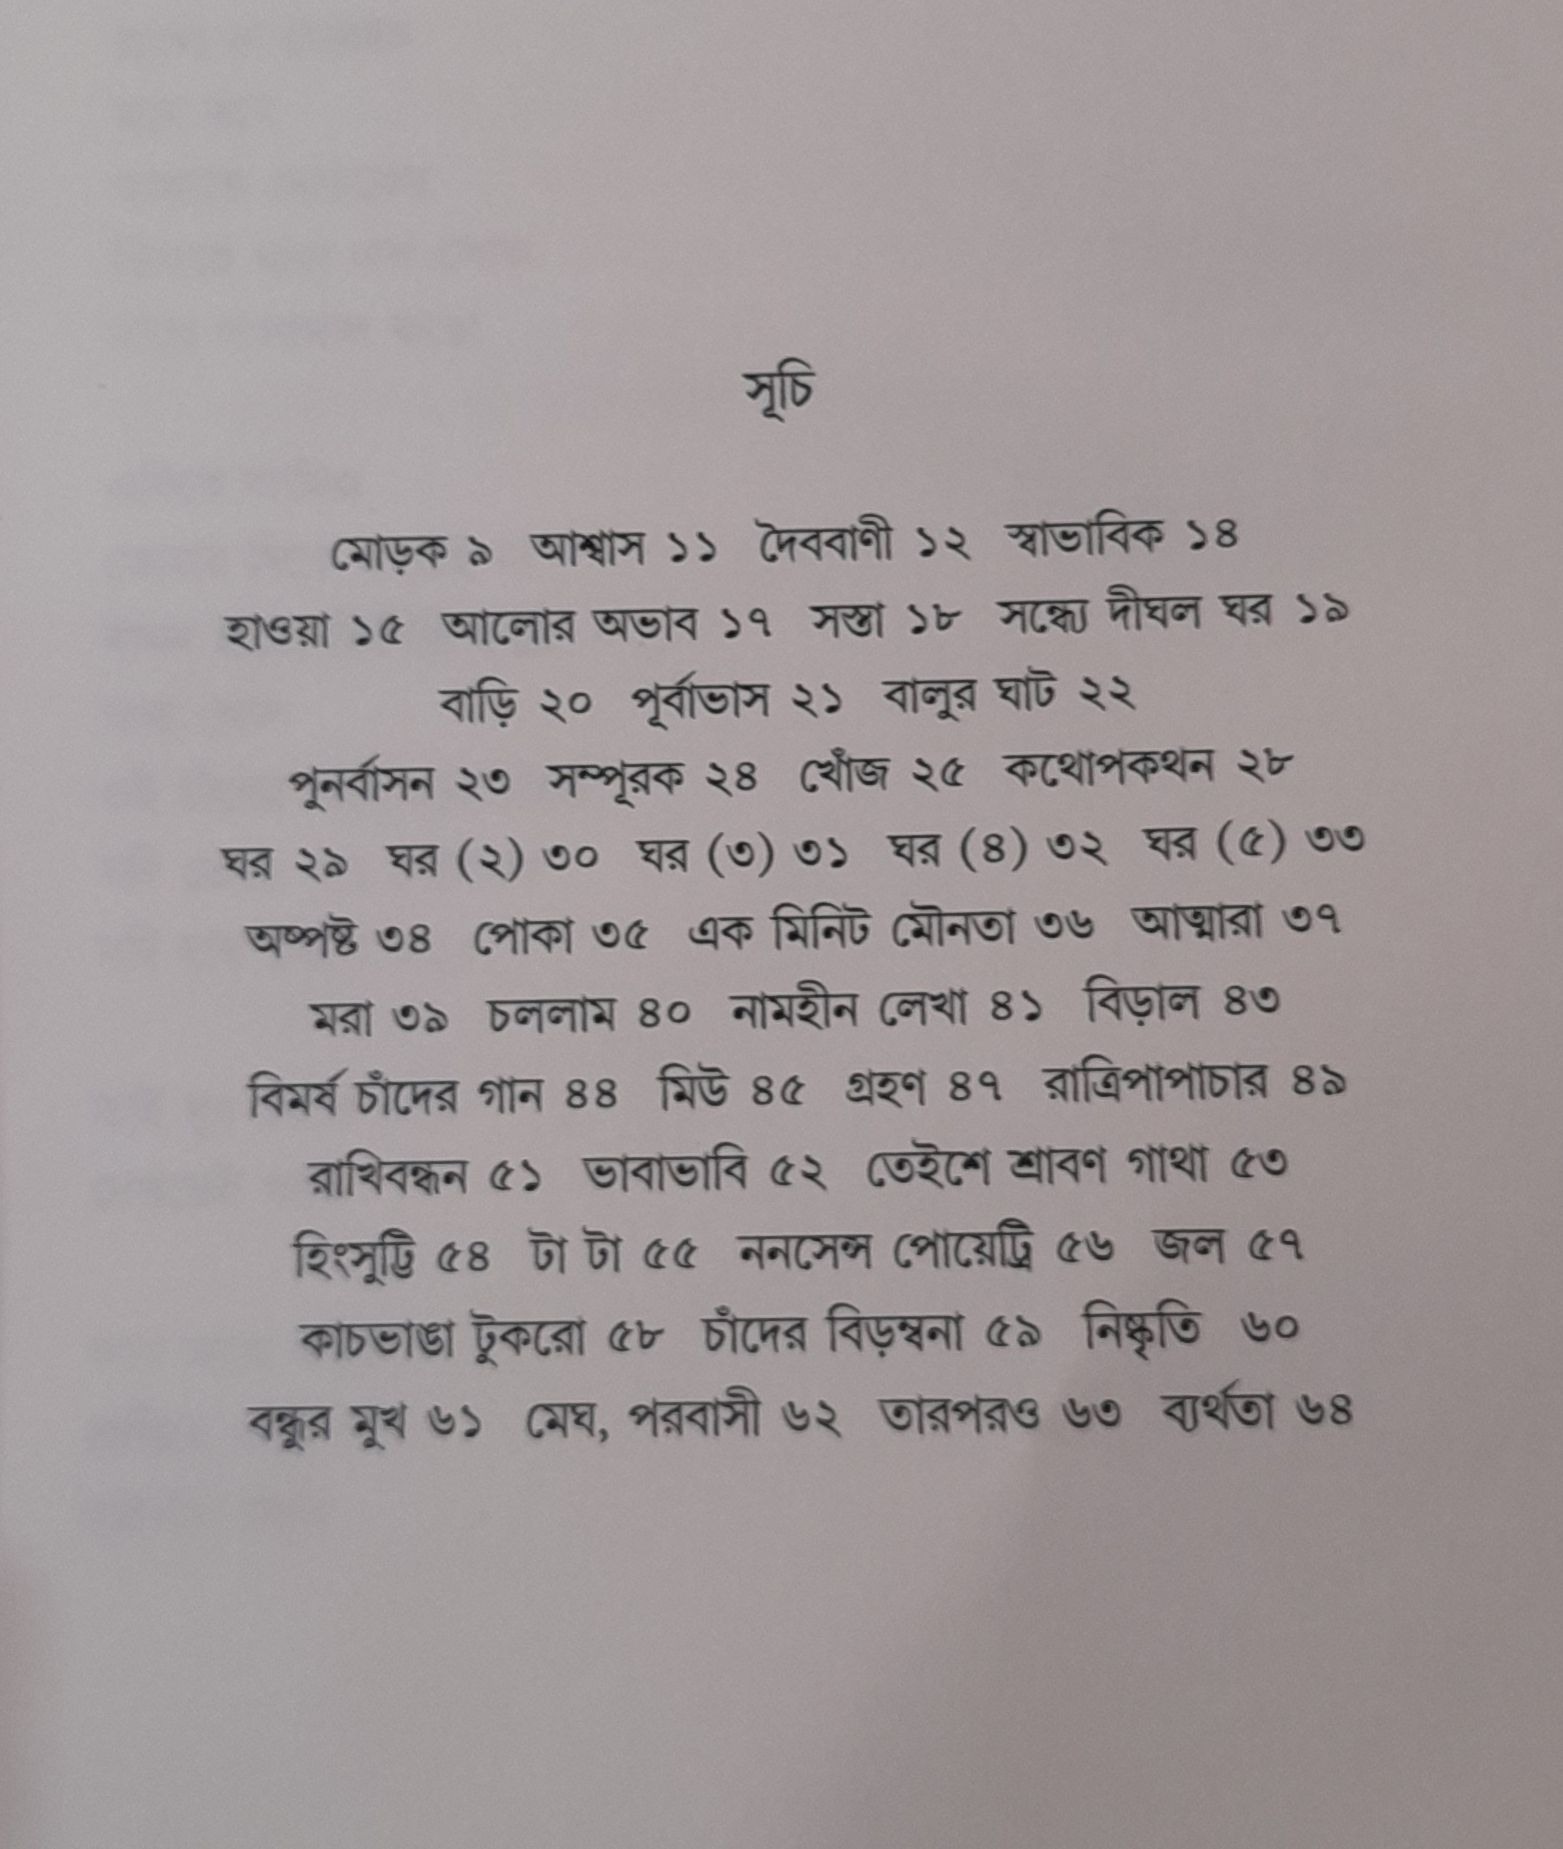 সূচি
মোড়ক ৯ আশ্বাস ১১ দৈববাণী ১২ স্বাভাবিক ১৪
হাওয়া ১৫ আলোর অভাব ১৭ সস্তা ১৮ সন্ধ্যে দীঘল ঘর ১৯
বাড়ি ২০ পূর্বাভাস ২১ বালুর ঘাট ২২
পুনর্বাসন ২৩ সম্পূরক ২৪ খোঁজ ২৫ কথোপকথন ২৮
ঘর ২৯ ঘর (২) ৩০ ঘর (৩) ৩১ ঘর (৪) ৩২ ঘর (৫) ৩৩
অষ্পষ্ট ৩৪ পোকা ৩৫ এক মিনিট মৌনতা ৩৬ আত্মারা ৩৭
মরা ৩৯ চললাম ৪০ নামহীন লেখা ৪১ বিড়াল ৪৩
বিমর্ষ চাঁদের গান ৪৪ মিউ ৪৫ গ্রহণ ৪৭ রাত্রিপাপাচার ৪৯
রাখিবন্ধন ৫১ ভাবাভাবি ৫২ তেইশে শ্রাবণ গাথা ৫৩
হিংসুট্টি ৫৪ টা টা ৫৫ ননসেন্স পোয়েট্রি ৫৬ জল ৫৭
কাচভাঙা টুকরো ৫৮ চাঁদের বিড়ম্বনা ৫৯ নিষ্কৃতি ৬০
বন্ধুর মুখ ৬১ মেঘ, পরবাসী ৬২ তারপরও ৬৩ ব্যর্থতা ৬৪